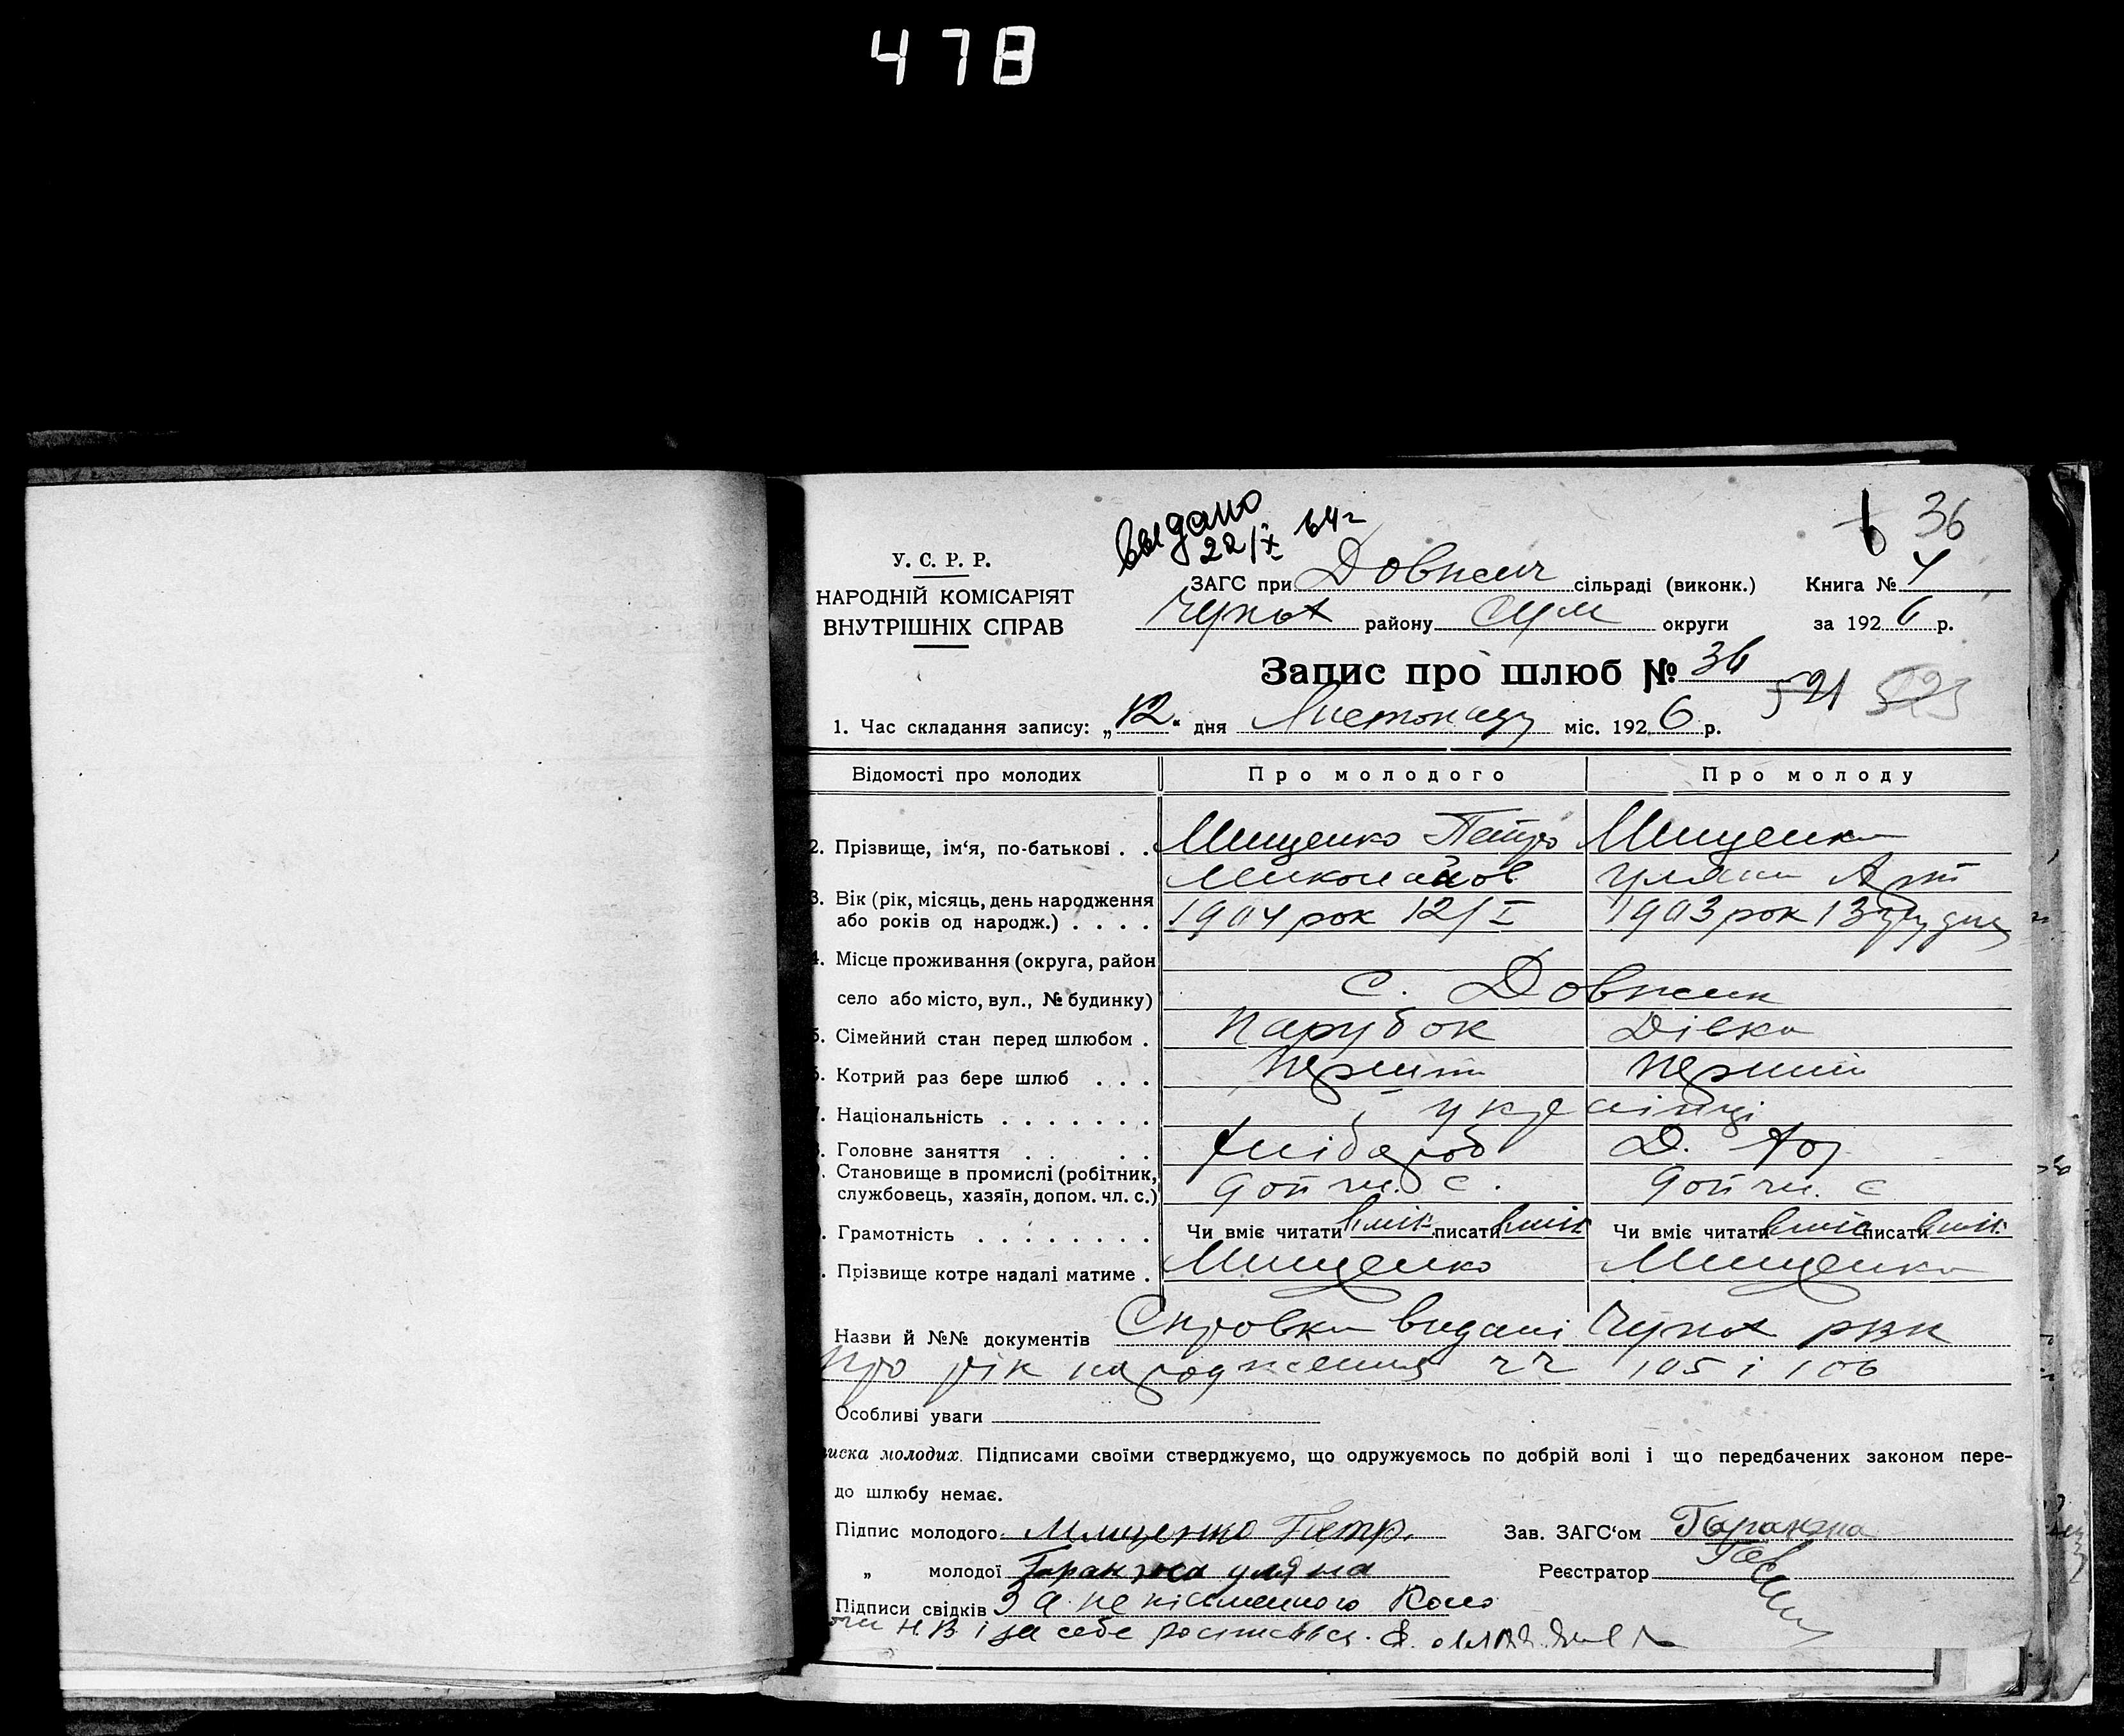 478
выдано
22/X 64г
6 36
У. С. Р. Р.
НАРОДНІЙ КОМІСАРІЯТ
ВНУТРІШНІХ СПРАВ
ЗАГС при Довжич сільраді (виконк.) Книга №
Чупах району Сум округи за 1926 р.
Запис про шлюб № 36
521 523
1. Час складання запису: „12" дня Листопаду міс. 1926 р.
Відомості про молодих Про молодого Про молоду
2. Прізвище, ім'я, по-батькові . . Мищенко Петро Мищенко
Миколайов Уляна Арт
3. Вік (рік, місяць, день народження
або років од народж.) . . . . 1904 рок 12/I 1903 рок 13 грудня
4. Місце проживання (округа, район
село або місто, вул., № будинку) с. Довжик
5. Сімейний стан перед шлюбом . Парубок Дівка
6. Котрий раз бере шлюб . . . перший перший
7. Національність . . . . . . . українці
8. Головне заняття . . . . хлібароб Д. Гос
9. Становище в промислі (робітник,
службовець, хазяїн, допом. чл. с.) доп чл. с. доп чл. с
. Грамотність . . . . . . . . Чи вміє читати вміє писати вміє Чи вміє читати вміє писати вміє
. Прізвище котре надалі матиме . Мищенко Мищенко
Назви й №№ документів Справки видані Чупах РВК
про рік народження чч 105 і 106
Особливі уваги
писка молодих. Підписами своїми стверджуємо, що одружуємось по добрій волі і що передбачених законом пере-
до шлюбу немає.
Підпис молодого Мищенко Петр. Зав. ЗАГС'ом Гаранжа
„ молодої Гаранжа уляна Реєстратор
Підписи свідків За неписьменного
Н.В. і за себе росписався.